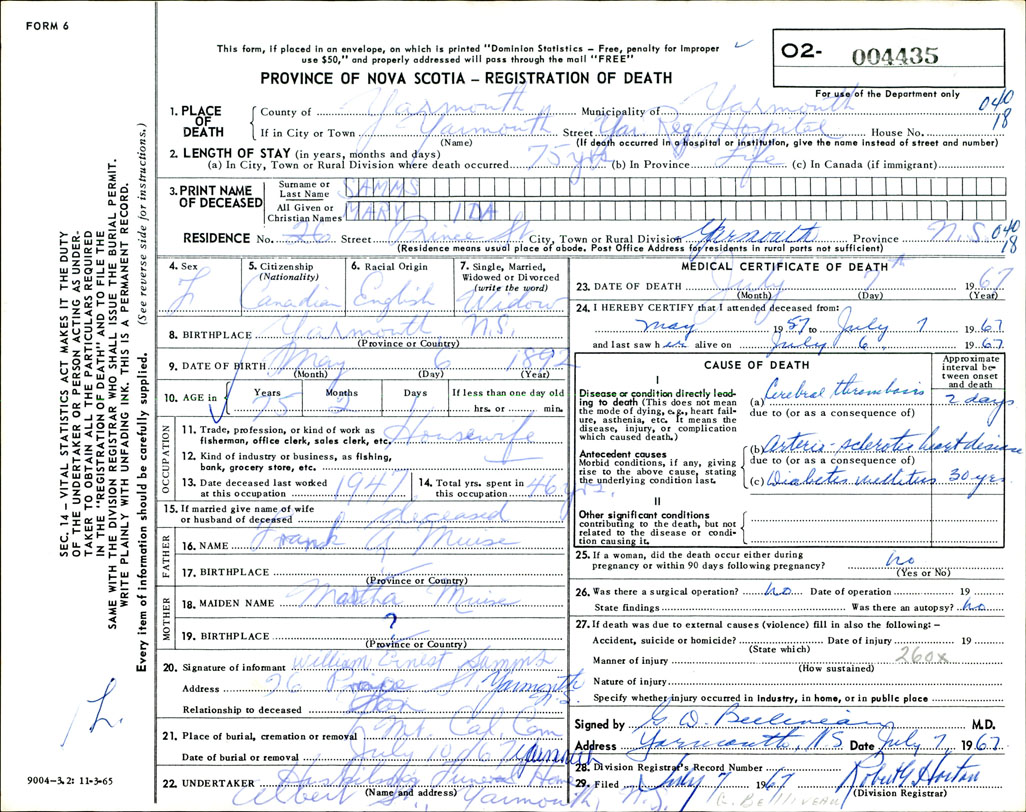 FORM 6
This form, if placed in an envelope, on which is printed "Dominion Statistics – Free, penalty for improper
use $50," and properly addressed will pass through the mail "FREE"
PROVINCE OF NOVA SCOTIA – REGISTRATION OF DEATH
O2- 004435
For use of the Department only
040
18
1. PLACE OF DEATH
County of Yarmouth Municipality of Yarmouth
If in City or Town Yarmouth Street Yar Reg. Hospital House No.
(Name) (If death occurred in a hospital or institution, give the name instead of street and number)
2. LENGTH OF STAY (in years, months and days)
(a) In City, Town or Rural Division where death occurred 75 yrs (b) In Province Life (c) In Canada (if immigrant)
3. PRINT NAME OF DECEASED
Surname or Last Name SAMMS
All Given or Christian Names MARY IDA
RESIDENCE No. 26 Street Prince St City, Town or Rural Division Yarmouth Province N.S. 040
18
(Residence means usual place of abode. Post Office Address for residents in rural parts not sufficient)
4. Sex
F
5. Citizenship
(Nationality)
Canadian
6. Racial Origin
English
7. Single, Married,
Widowed or Divorced
(write the word)
Widow
8. BIRTHPLACE Yarmouth N.S.
(Province or Country)
9. DATE OF BIRTH May 6 1892
(Month) (Day) (Year)
10. AGE in
Years Months Days If less than one day old
75 2 hrs. or min.
OCCUPATION
11. Trade, profession, or kind of work as
fisherman, office clerk, sales clerk, etc. Housewife
12. Kind of industry or business, as fishing,
bank, grocery store, etc.
13. Date deceased last worked
at this occupation 1947
14. Total yrs. spent in
this occupation 46 yrs.
15. If married give name of wife
or husband of deceased deceased
FATHER
16. NAME Frank A Muise
17. BIRTHPLACE
(Province or Country)
MOTHER
18. MAIDEN NAME Martha Muise
19. BIRTHPLACE ?
(Province or Country)
20. Signature of informant William Ernest Samms
Address 26 Prince St Yarmouth
N.S.
Relationship to deceased Son
21. Place of burial, cremation or removal Mt Cal. Cem
Date of burial or removal July 10 /67 Yarmouth
22. UNDERTAKER Funeral Home
(Name and address)
Albert St., Yarmouth, N.S.
MEDICAL CERTIFICATE OF DEATH
23. DATE OF DEATH July 7th 1967
(Month) (Day) (Year)
24. I HEREBY CERTIFY that I attended deceased from:
May 1957 to July 7 1967
and last saw her alive on July 6 1967
CAUSE OF DEATH
Approximate
interval be-
tween onset
and death
I
Disease or condition directly lead-
ing to death (This does not mean
the mode of dying, e.g., heart fail-
ure, asthenia, etc. It means the
disease, injury, or complication
which caused death.)
(a) Cerebral thrombosis 2 days
due to (or as a consequence of)
Antecedent causes
Morbid conditions, if any, giving
rise to the above cause, stating
the underlying condition last.
(b) Arterio-sclerotic heart disease
due to (or as a consequence of)
(c) Diabetes mellitus 30 yrs.
II
Other significant conditions
contributing to the death, but not
related to the disease or condi-
tion causing it.
25. If a woman, did the death occur either during
pregnancy or within 90 days following pregnancy? no
(Yes or No)
26. Was there a surgical operation? no Date of operation 19
State findings Was there an autopsy? no
27. If death was due to external causes (violence) fill in also the following: –
Accident, suicide or homicide? Date of injury 19
(State which)
Manner of injury 260X
(How sustained)
Nature of injury
Specify whether injury occurred in industry, in home, or in public place
Signed by G. D. Belliveau M.D.
Address Yarmouth, N.S. Date July 7, 1967
28. Division Registrar's Record Number
29. Filed July 7 1967 Robert G Horton
(Division Registrar)
G. BELLIVEAU
SEC. 14 – VITAL STATISTICS ACT MAKES IT THE DUTY
OF THE UNDERTAKER OR PERSON ACTING AS UNDER-
TAKER TO OBTAIN ALL THE PARTICULARS REQUIRED
IN THE "REGISTRATION OF DEATH" AND TO FILE THE
SAME WITH THE DIVISION REGISTRAR WHO SHALL ISSUE THE BURIAL PERMIT.
WRITE PLAINLY WITH UNFADING INK. THIS IS A PERMANENT RECORD.
Every item of information should be carefully supplied. (See reverse side for instructions.)
9004–3.2: 11-3-65